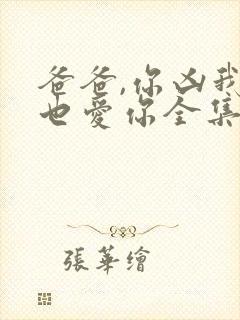 爸爸,你凶我
也爱你全集
張華繪